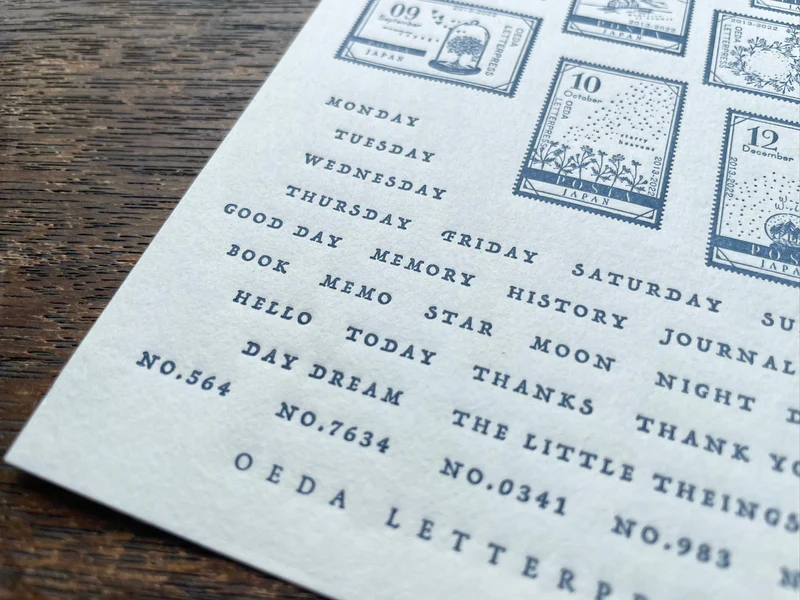 09
September
JAPAN
OEDA LETTERPRESS
2013-2022
2013-2022
OEDA LETTERPRESS
10
October
OEDA LETTERPRESS
2013-2022
POSTA
JAPAN
12
December
2013-2022
MONDAY
TUESDAY
WEDNESDAY
THURSDAY FRIDAY SATURDAY SU
GOOD DAY MEMORY HISTORY JOURNAL
BOOK MEMO STAR MOON NIGHT D
HELLO TODAY THANKS THANK YO
DAY DREAM THE LITTLE THEINGS
NO.564 NO.7634 NO.0341 NO.983
OEDA LETTERP